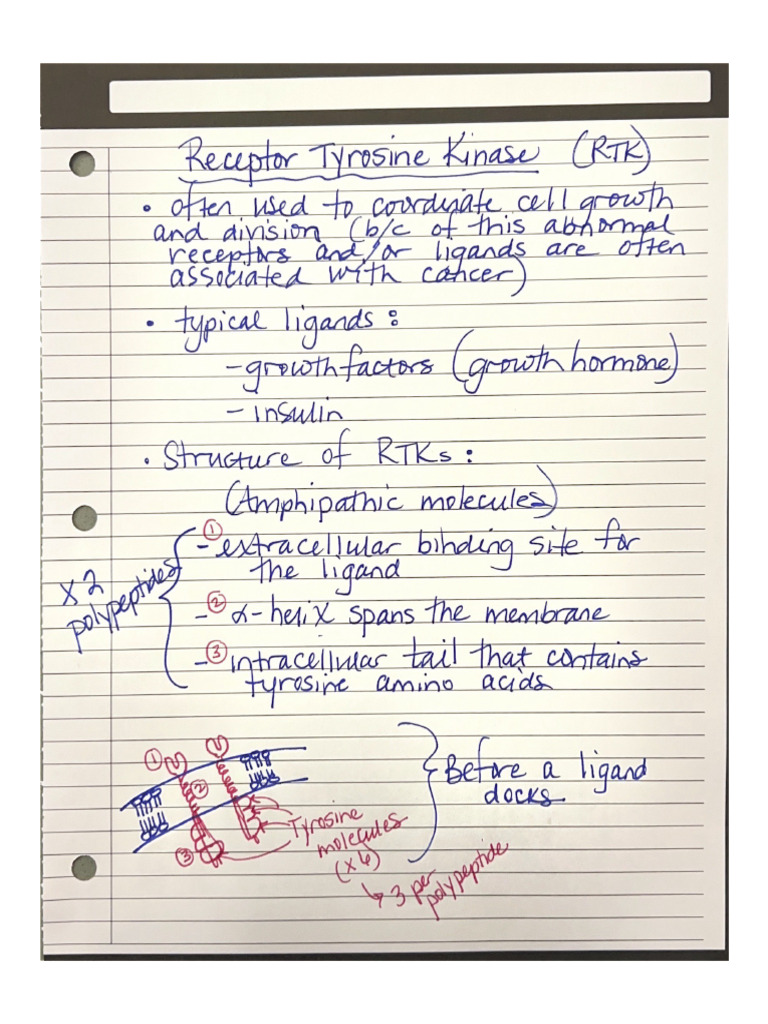 Receptor Tyrosine Kinase (RTK)
• often used to coordinate cell growth
and division (b/c of this abnormal
receptors and/or ligands are often
associated with cancer)
• typical ligands:
- growth factors (growth hormone)
- insulin
• Structure of RTKs:
(Amphipathic molecules)
x2 polypeptides
① - extracellular binding site for
the ligand
- ② α-helix spans the membrane
- ③ intracellular tail that contains
tyrosine amino acids
① ② ③
Tyrosine
molecules
(x6)
↳ 3 per
polypeptide
Before a ligand
docks